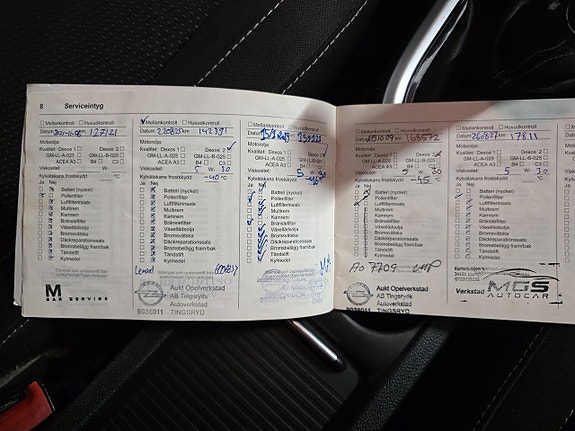 8 Serviceintyg
Mellankontroll Huvudkontroll
Datum 127121
Motorolja
Kvalitet: Dexos 1 Dexos 2
GM-LL-A-025 GM-LL-B-025
ACEA A3 B4 C3
Viskositet W-
Kylvätskans fryskydd °C
Ja Nej
Batteri (nyckel)
Pollenfilter
Luftfilterinsats
Multirem
Kamrem
Bränslefilter
Växellådsolja
Bromsvätska
Däckreparationssats
Bromsbelägg fram/bak
Tändstift
Kylmedel
M
CAR SERVICE
Mellankontroll Huvudkontroll
Datum 220825 142391
Motorolja
Kvalitet: Dexos 1 Dexos 2
GM-LL-A-025 GM-LL-B-025
ACEA A3 B4 C3
Viskositet 5 W- 30
Kylvätskans fryskydd -40 °C
Ja Nej
Batteri (nyckel)
Pollenfilter
Luftfilterinsats
Multirem
Kamrem
Bränslefilter
Växellådsolja
Bromsvätska
Däckreparationssats
Bromsbelägg fram/bak
Tändstift
Kylmedel
Aukt Opelverkstad
AB Tingsryds
Autoverkstad
9036011 TINGSRYD
Mellankontroll Huvudkontroll
Datum
Motorolja
Kvalitet: Dexos 1 Dexos 2
GM-LL-A-025 GM-LL-B-025
ACEA A3 B4 C3
Viskositet 5 W- 30
Kylvätskans fryskydd
Ja Nej
Batteri (nyckel)
Pollenfilter
Luftfilterinsats
Multirem
Kamrem
Bränslefilter
Växellådsolja
Bromsvätska
Däckreparationssats
Bromsbelägg fram/bak
Tändstift
Kylmedel
Mellankontroll Huvudkontroll
Datum 168572
Motorolja
Kvalitet: Dexos 1 Dexos 2
GM-LL-A-025 GM-LL-B-025
ACEA A3 B4 C3
Viskositet 5 W- 30
Kylvätskans fryskydd -45 °C
Ja Nej
Batteri (nyckel)
Pollenfilter
Luftfilterinsats
Multirem
Kamrem
Bränslefilter
Växellådsolja
Bromsvätska
Däckreparationssats
Bromsbelägg fram/bak
Tändstift
Kylmedel
Ao 7709
Aukt Opelverkstad
AB Tingsryds
Autoverkstad
9036011 TINGSRYD
Mellankontroll Huvudkontroll
Datum 260827
Motorolja
Kvalitet: Dexos 1 Dexos 2
GM-LL-A-025 GM-LL-B-025
ACEA A3 B4 C3
Viskositet 5 W- 30
Kylvätskans fryskydd °C
Ja Nej
Batteri (nyckel)
Pollenfilter
Luftfilterinsats
Multirem
Kamrem
Bränslefilter
Växellådsolja
Bromsvätska
Däckreparationssats
Bromsbelägg fram/bak
Tändstift
Kylmedel
Verkstad MGS
AUTOCAR